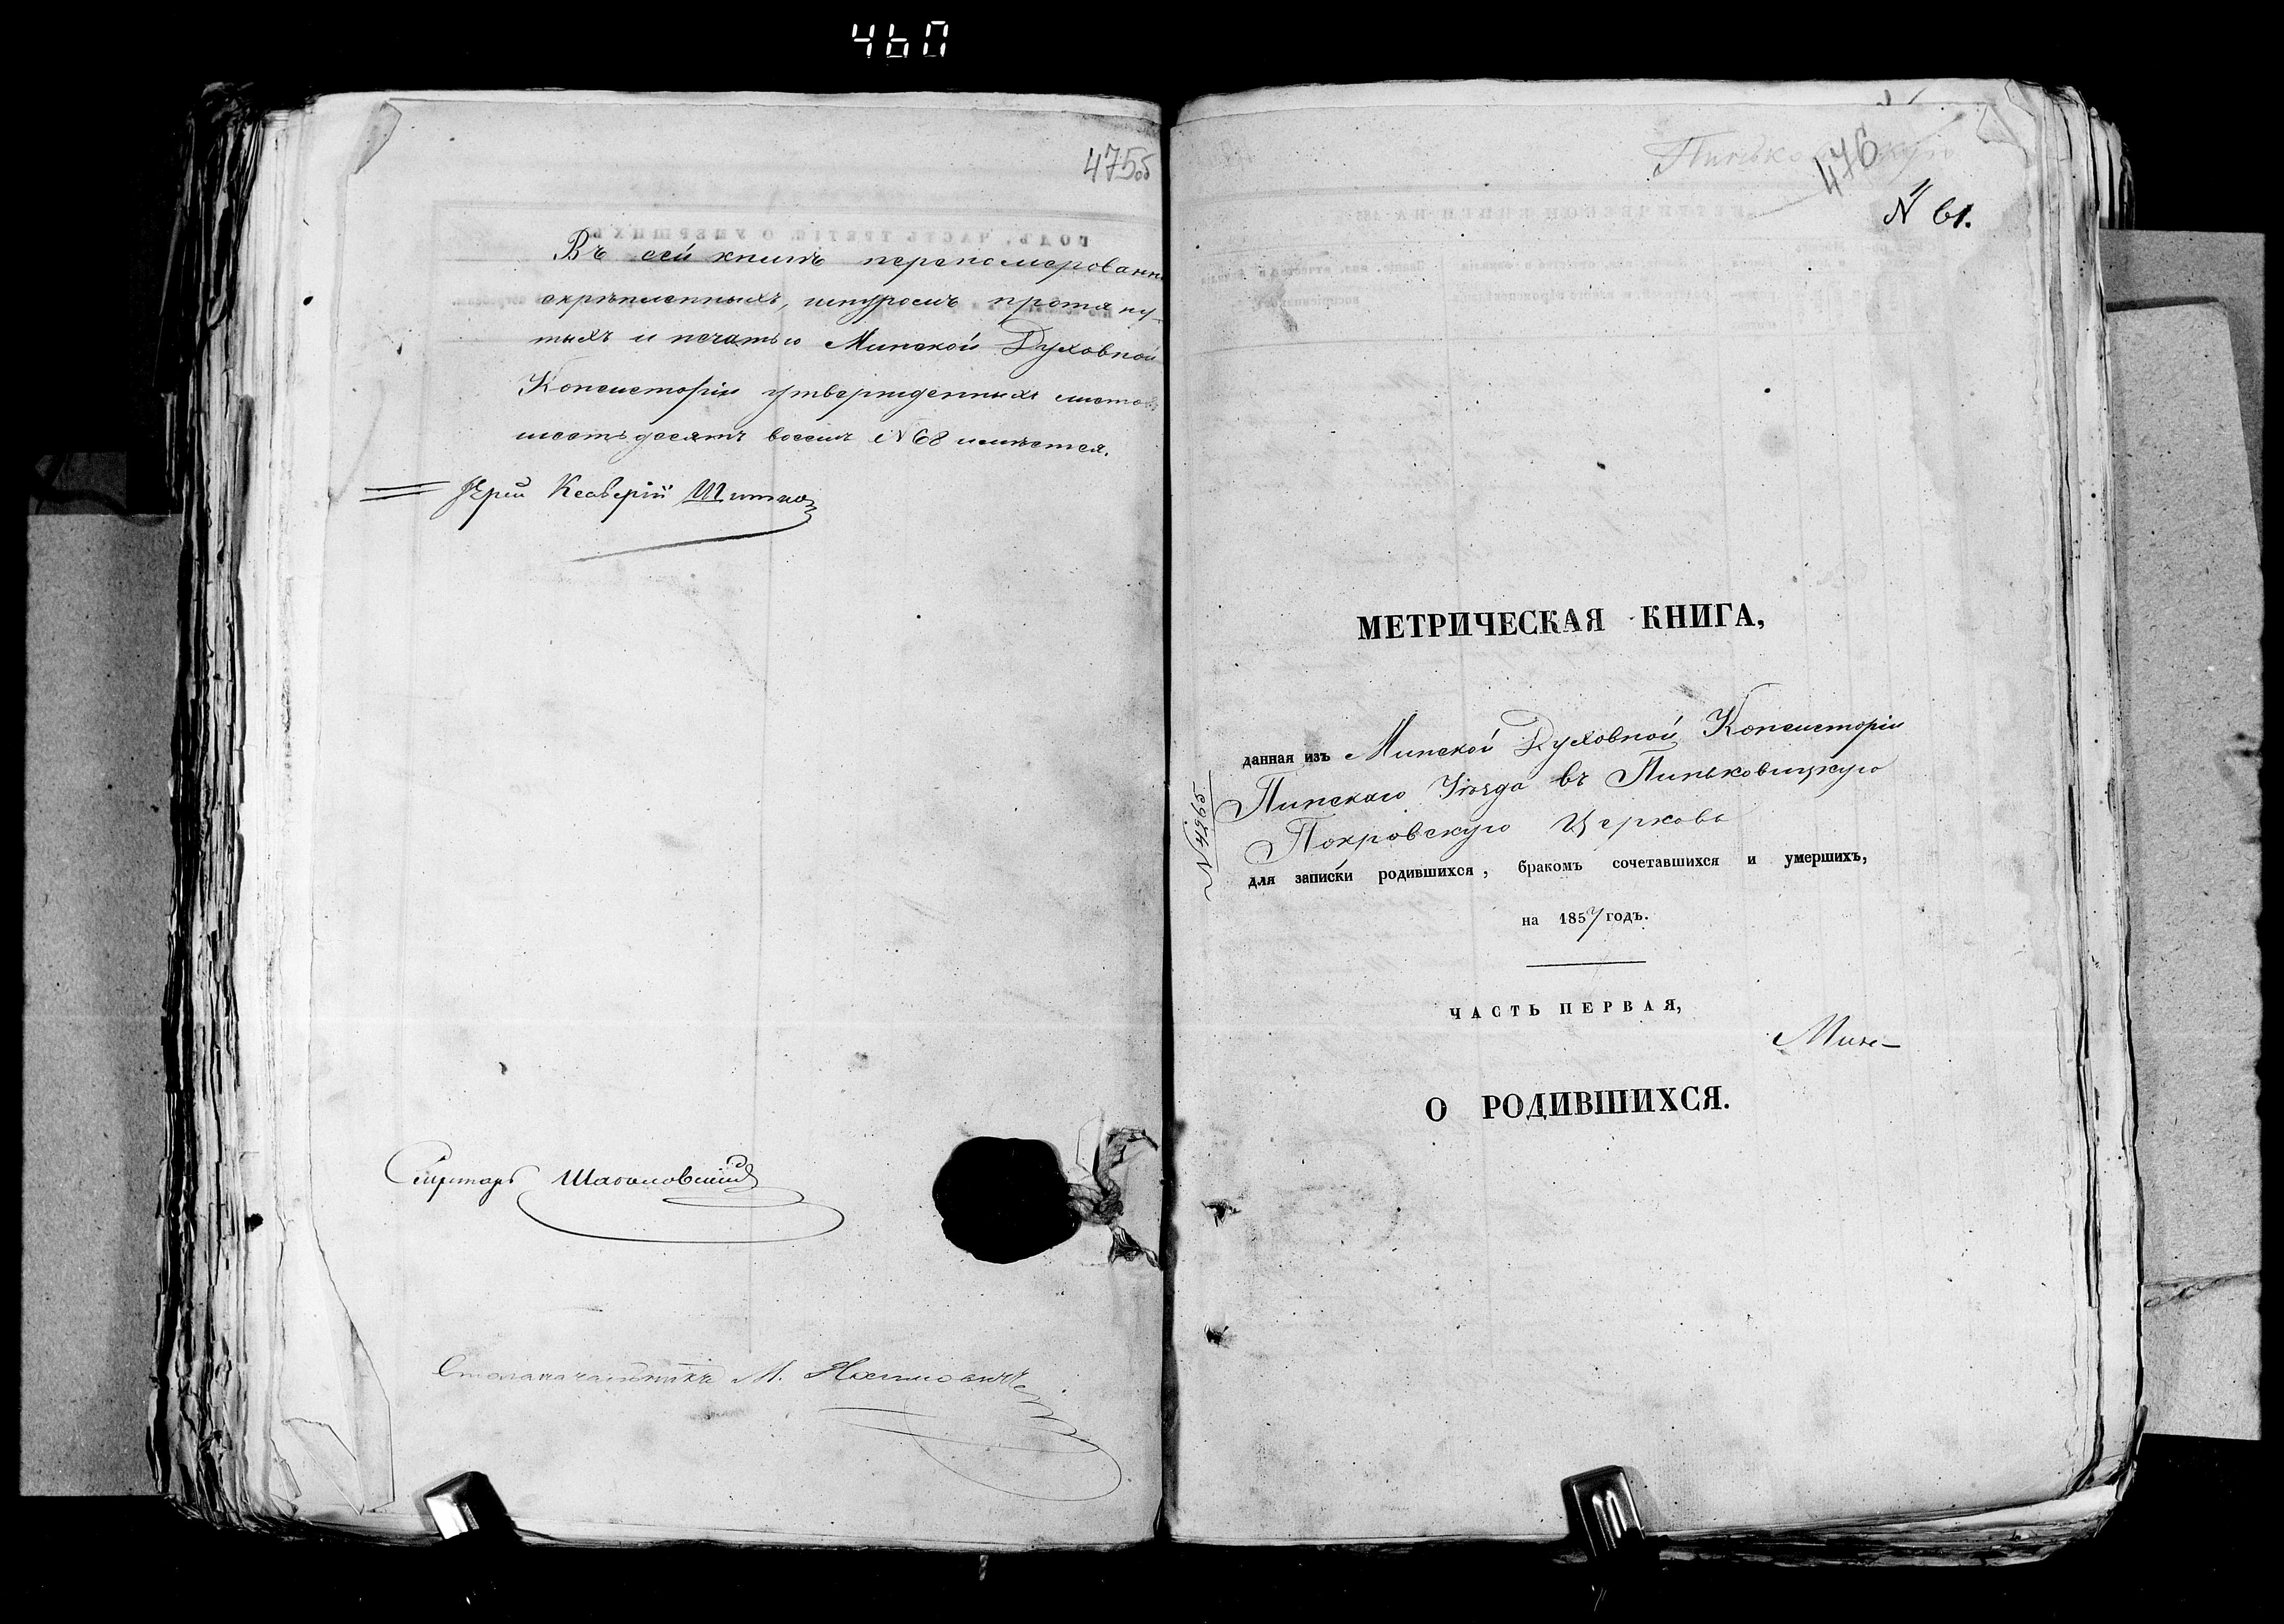 460
475об
Въ сей книгѣ перепомерованн
скрѣпленныхъ, шнуромъ протяну-
тыхъ и печатью Минской Духовной
Консисторіи утвержденныхъ листов
шестьдесятъ восемь N 68 имѣется.
Іерей Ксаверій Шитко
Секретарь
Столоначальникъ М.
476
N 61.
МЕТРИЧЕСКАЯ КНИГА,
данная изъ Минской Духовной Консисторіи
Пинскаго Уѣзда въ Пиньковицкую
Покровскую Церковь
N 4265
для записки родившихся, бракомъ сочетавшихся и умершихъ,
на 1857 годъ.
ЧАСТЬ ПЕРВАЯ,
Мин-
О РОДИВШИХСЯ.